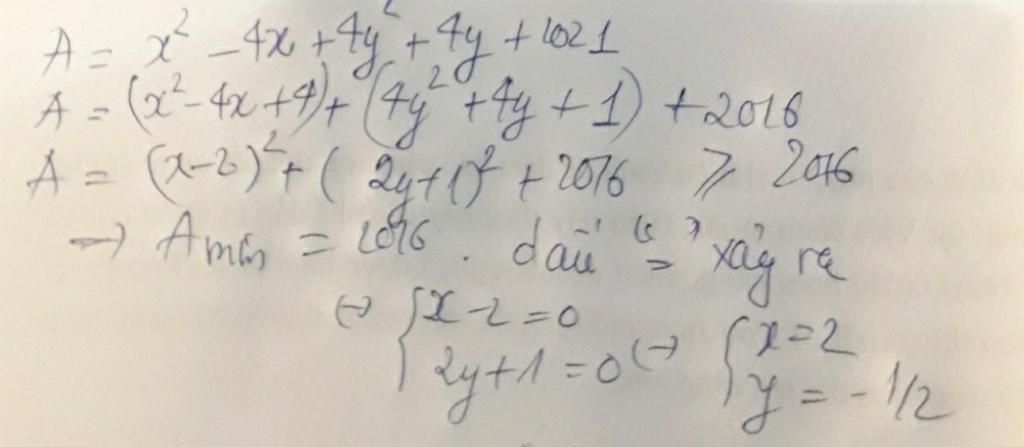 A = x² - 4x + 4y² + 4y + 2021
A = (x² - 4x + 4) + (4y² + 4y + 1) + 2016
A = (x-2)² + ( 2y+1)² + 2016 ⩾ 2016
→ Amin = 2016 . dấu "=" xảy ra
↔ { x - 2 = 0 { x = 2
2y + 1 = 0 ↔ y = -1/2